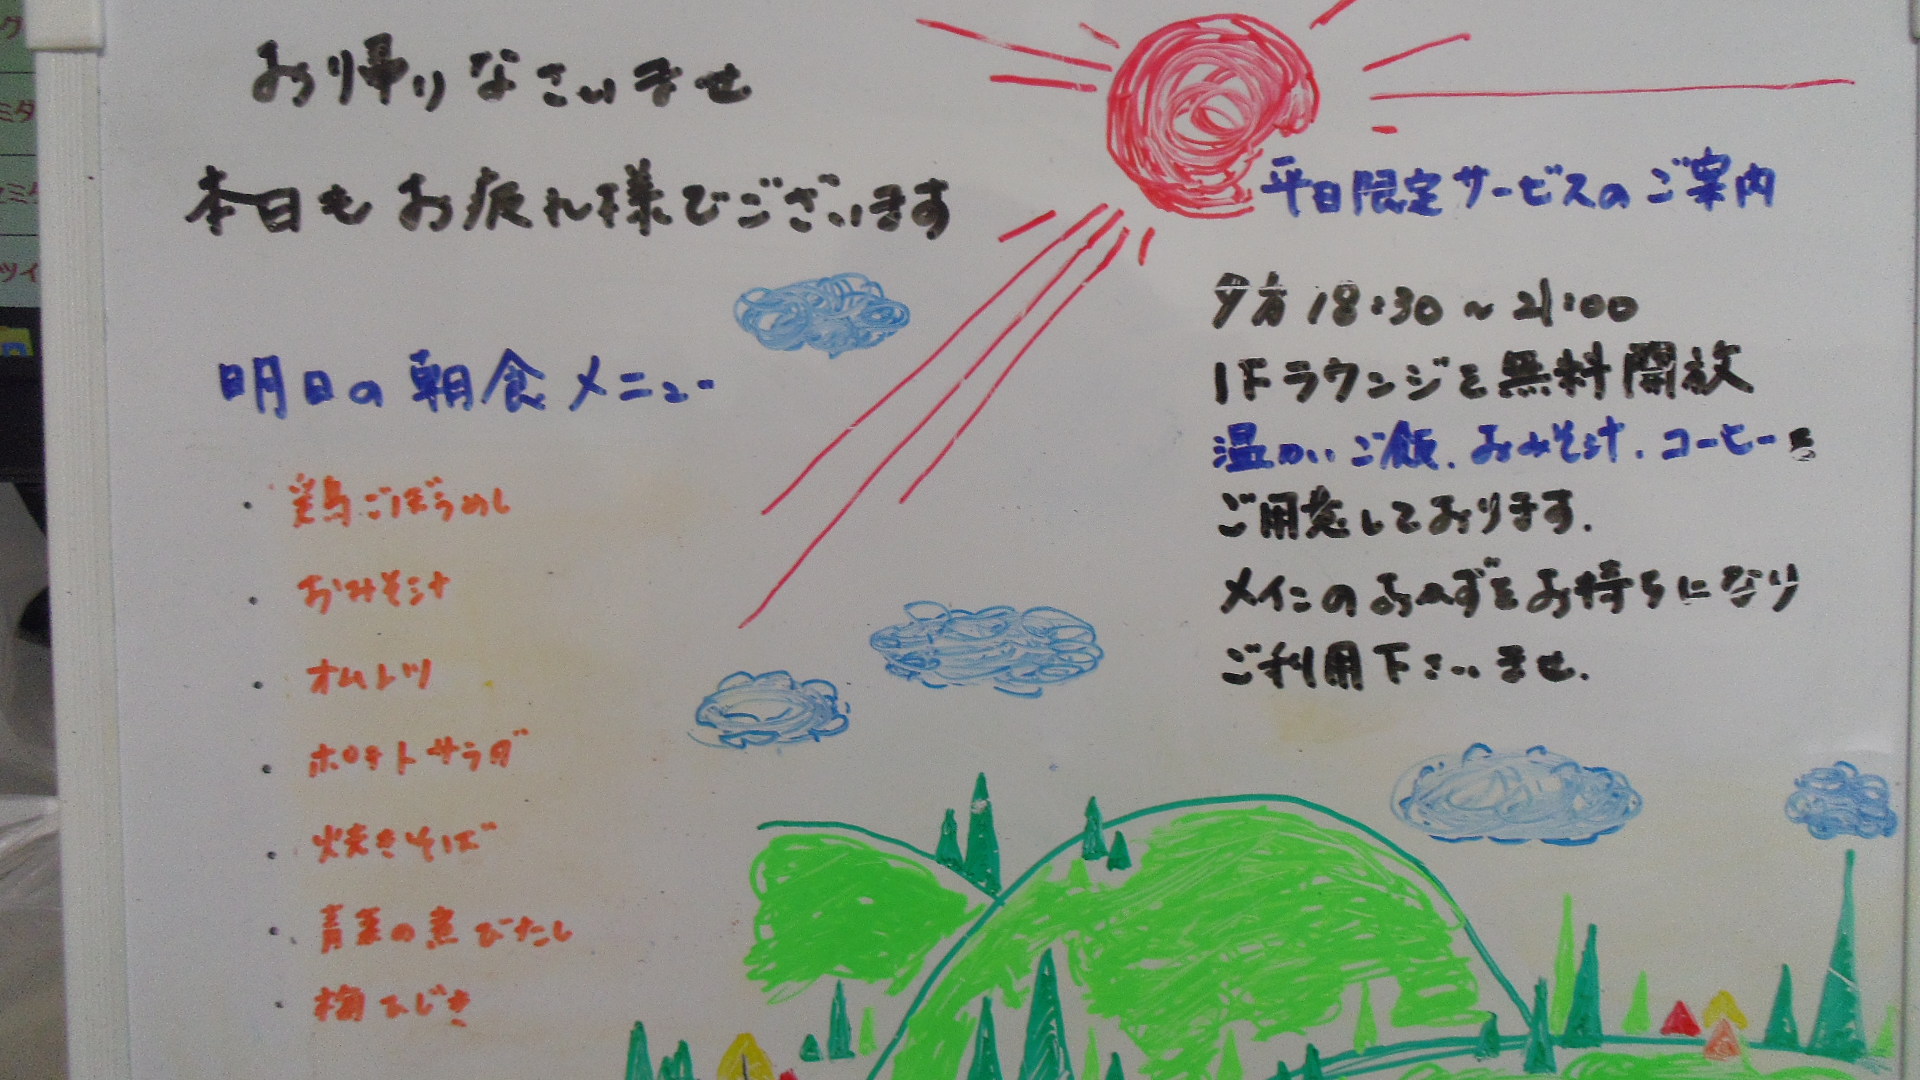 お帰りなさいませ
本日もお疲れ様でございます
明日の朝食メニュー
・鶏ごぼうめし
・おみそ汁
・オムレツ
・ポテトサラダ
・焼きそば
・青菜の煮びたし
・梅ひじき
平日限定サービスのご案内
夕方18:30~21:00
1Fラウンジを無料開放
温かいご飯、おみそ汁、コーヒーを
ご用意しております。
メインのおかずをお持ちになり
ご利用下さいませ。